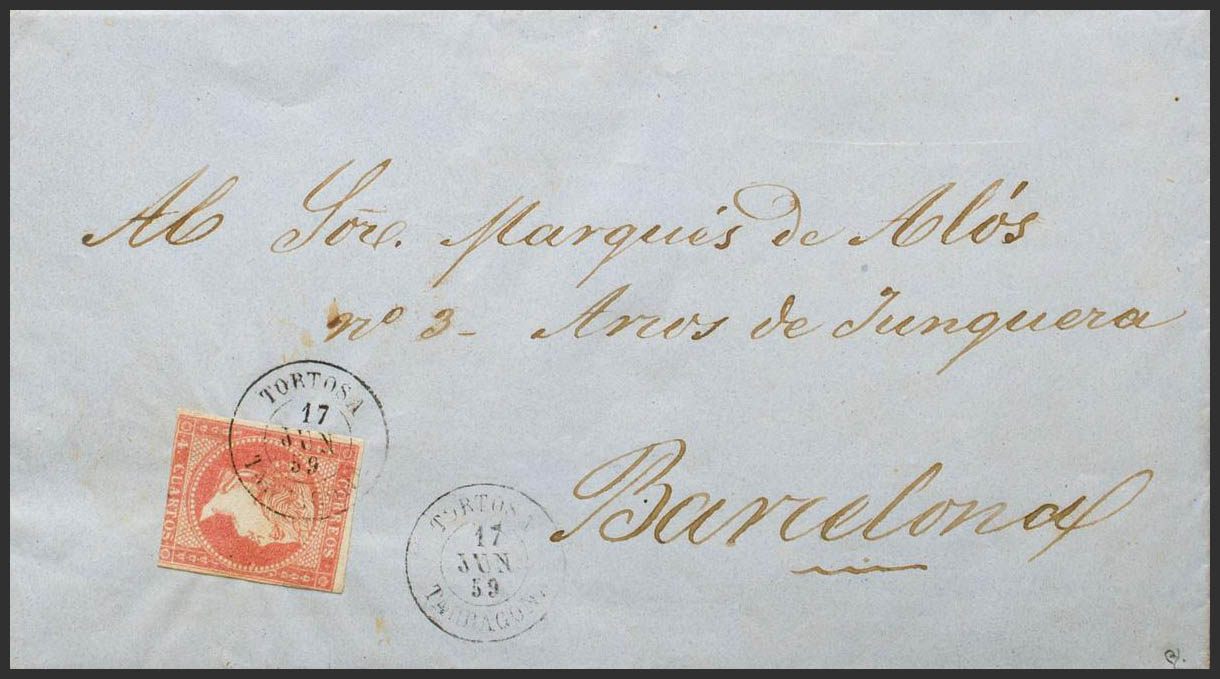 Al Sõre. Marquis de Alós
nº 3 - Arcos de Junquera
Barcelona
TORTOSA
17
JUN
59
4 CUARTOS
CORREOS
TORTOSA
17
JUN
59
TARRAGONA